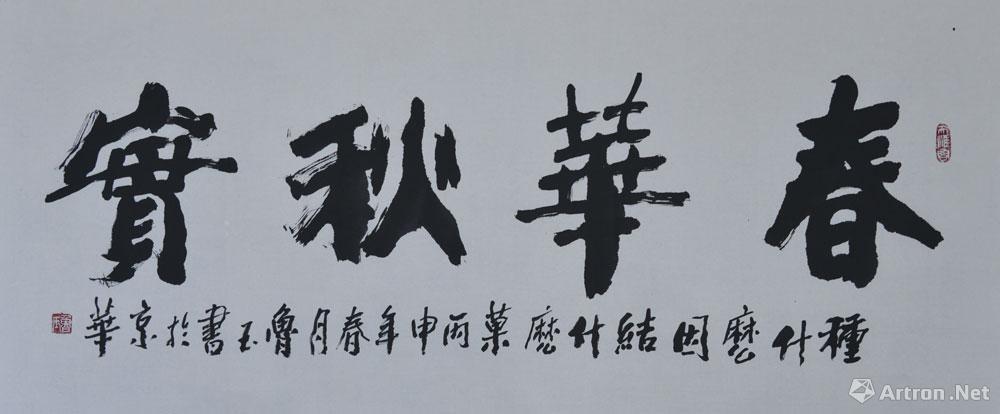 春華秋實
種什麼因結什麼菓丙申年春月魯玉書於京華
Artron.Net